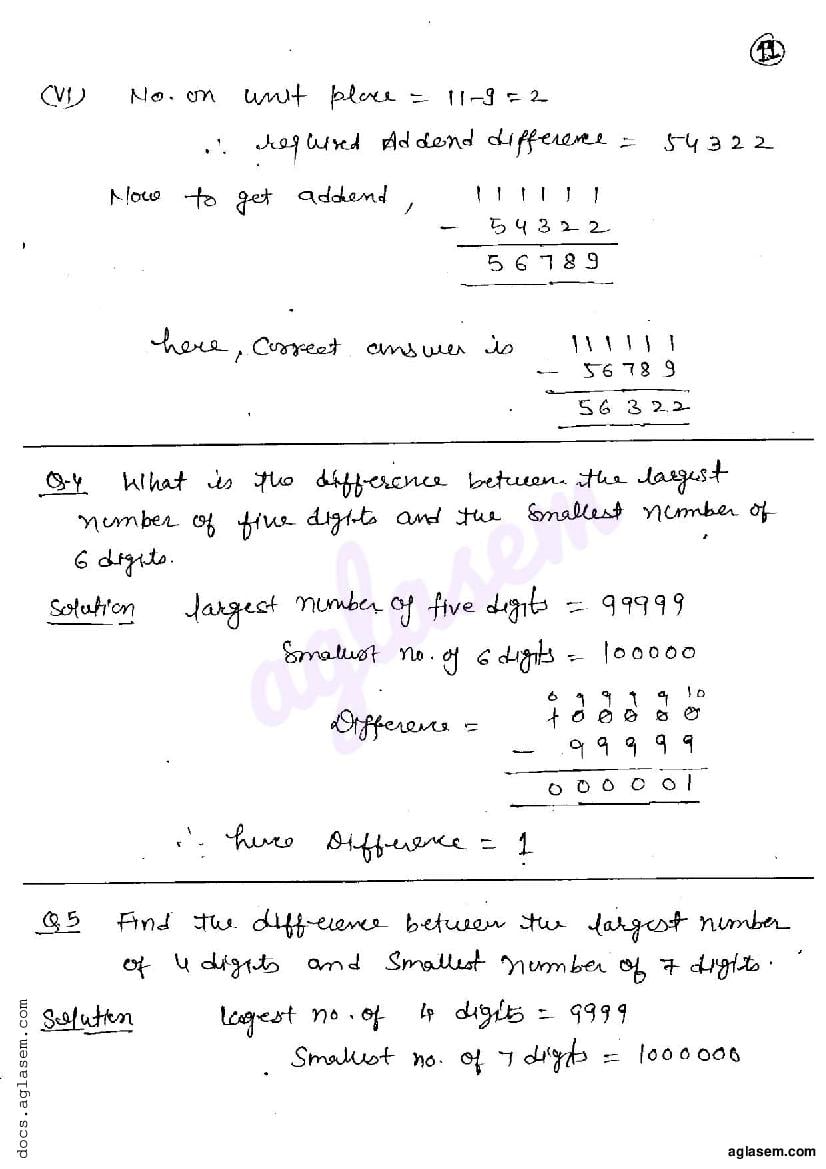 11
(VI) No. on unit place = 11-9 = 2
∴ required Addend difference = 54322
Now to get addend, 111111
- 54322
56789
here, Correct answer is 111111
- 56789
56322
Q-4 What is the difference between the largest
number of five digits and the smallest number of
6 digits.
Solution largest number of five digits = 99999
Smallest no. of 6 digits = 100000
0 9 9 9 9 10
Difference = 100000
- 99999
000001
∴ here Difference = 1
Q5 Find the difference between the largest number
of 4 digits and Smallest number of 7 digits.
Solution largest no. of 4 digits = 9999
Smallest no. of 7 digits = 1000000
aglasem
docs.aglasem.com
aglasem.com